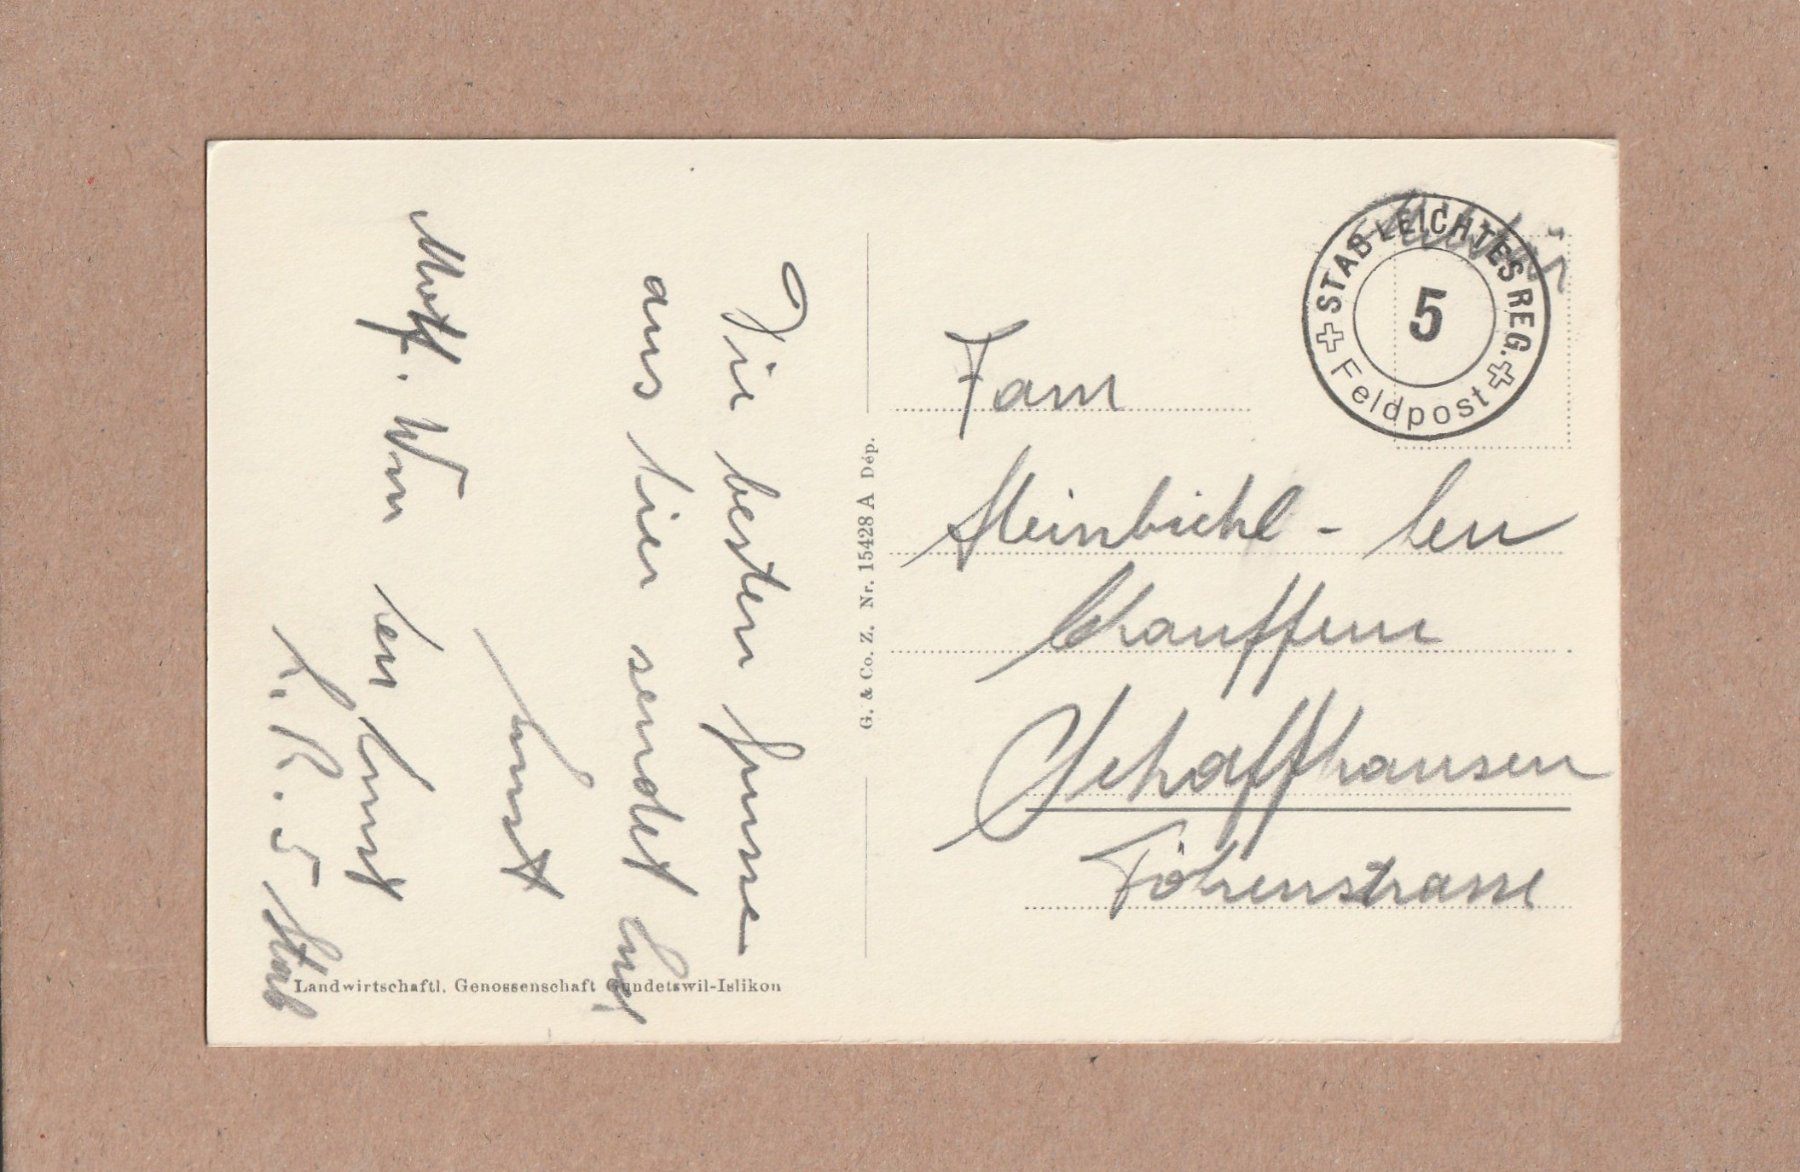 Die besten Grüsse
aus hier sendet Euch
Ernst
Motf.
Ernst
L. R. 5 Stab
Landwirtschaftl. Genossenschaft Gundetswil-Islikon
G. & Co. Z. Nr. 15428 A Dép.
Militär
STAB LEICHTES REG.
5
Feldpost
Fam
Chauffeur
Schaffhausen
Föhrenstrasse